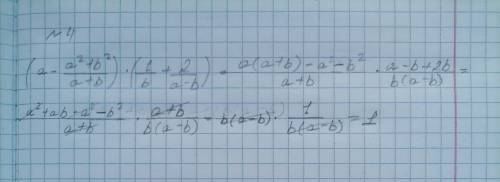 №4
(a - (a²+b²)/(a+b)) · (1/b + 2/(a-b)) = (a(a+b) - a² - b²)/(a+b) · (a-b+2b)/(b(a-b)) =
(a²+ab-a²-b²)/(a+b) · (a+b)/(b(a-b)) = b(a-b) · 1/(b(a-b)) = 1